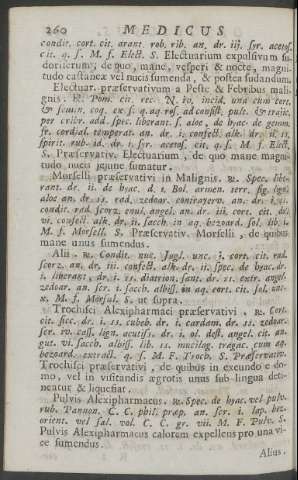 260 MEDICUS
condit. cort. cit. arant. rob. rib. an. dr. iij. syr. acetos.
cit. q. s. M. f. Elect. S. Electuarium expulsivum su-
doriferum; de quo, mane, vesperi & nocte, magni-
tudo castaneæ vel nucis sumenda, & postea sudandum.
Electuar. præservativum a Peste & Febribus mali-
gnis. ℞. Pom. cit. rec. N. iv. incid. una cum cort.
& semin. coq. ex s. q. aq. ros. ad consist. pult. & traiic.
per cribr. add. spec. liberant. s. aloe, de hyac. de gemm.
fr. cordial. temperat. an. dr. i. confect. alk. dr. ii. ss.
spirit. rub. id. dr. i. syr. acetos. cit. q. s. M. f. Elect.
S. Præservativ. Electuarium, de quo mane magni-
tudo nucis jejune sumatur.
Morselli præservativi in Malignis. ℞. Spec. libe-
rant. dr. ii. de hyac. d. i. Bol. armen. terr. sig. lign.
aloe an. dr. ss. rad. zedoar. contrayerv. an. dr. i.
condit. rad. scorz. enul. angel. an. dr. iii. cort. cit. dr.
vi. confect. alk. dr. ii. sacch. in aq. bezoard. sol. lib. i.
M. f. Morsell. S. Præservativ. Morselli, de quibus
mane unus sumendus.
Alii. ℞. Condit. nuc. Jugl. unc. j. cort. cit. rad.
scorz. an. dr. iii. confect. alk. dr. ii. spec. de hyac. dr.
i. liberant. dr. i. ss. diarrod. sant. dr. ss. extr. angel.
zedoar. an. scr. i. sacch. albiss. in aq. cort. cit. sol. unc.
x. M. f. Morsul. S. ut supra.
Trochisci Alexipharmaci præservativi. ℞. Cort.
cit. sicc. dr. i. ss. cubeb. dr. i. cardam. dr. ss. zedoar.
scr. iv. cass. lign. acutiss. dr. i. ol. dest. angel. cit. an.
gut. vi. sacch. albiss. lib. ss. mucilag. tragac. cum aq.
bezoard. extract. q. s. M. F. Troch. S. Præservativ.
Trochisci præservativi, de quibus in exeundo e do-
mo, vel in visitandis ægrotis unus sub lingua deti-
neatur & liquefiat.
Pulvis Alexipharmacus. ℞. Spec. de hyac. vel pulv.
rub. Pannon. C. C. phil. præp. an. scr. i. lap. bez.
orient. vel sal. vol. C. C. gr. vii. M. F. Pulv. S.
Pulvis Alexipharmacus calorem expellens pro una vi-
ce sumendus.
Alius.